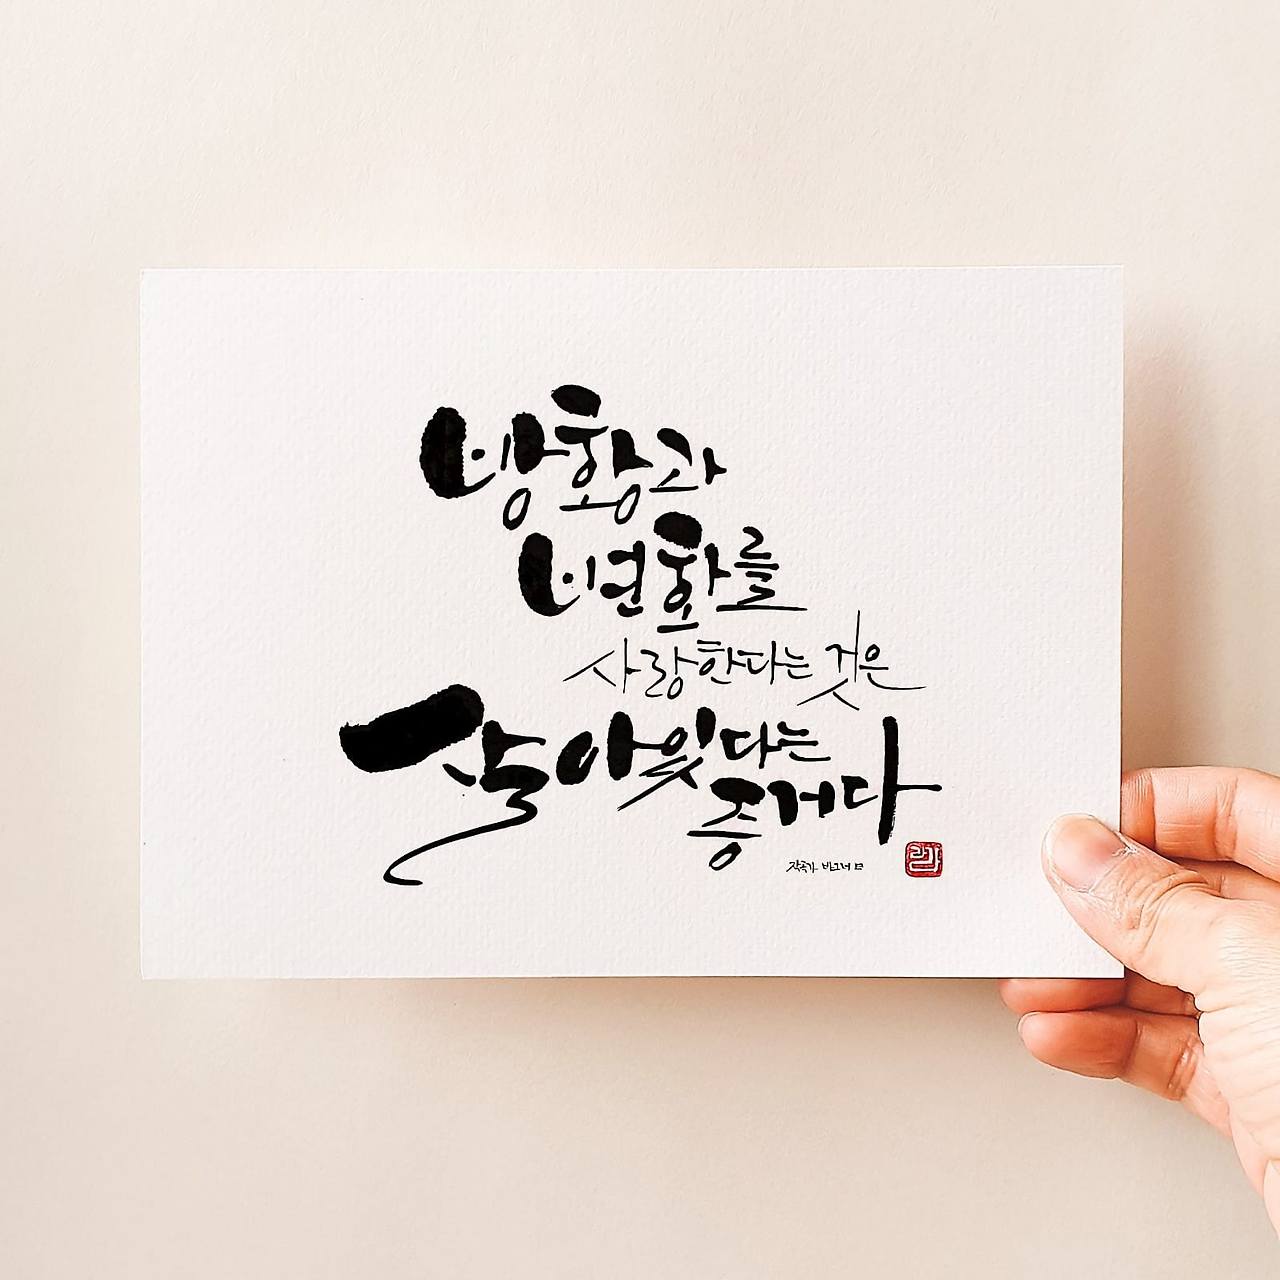 방황과
변화를
사랑한다는 것은
살아있다는
증거다
작곡가 바그너